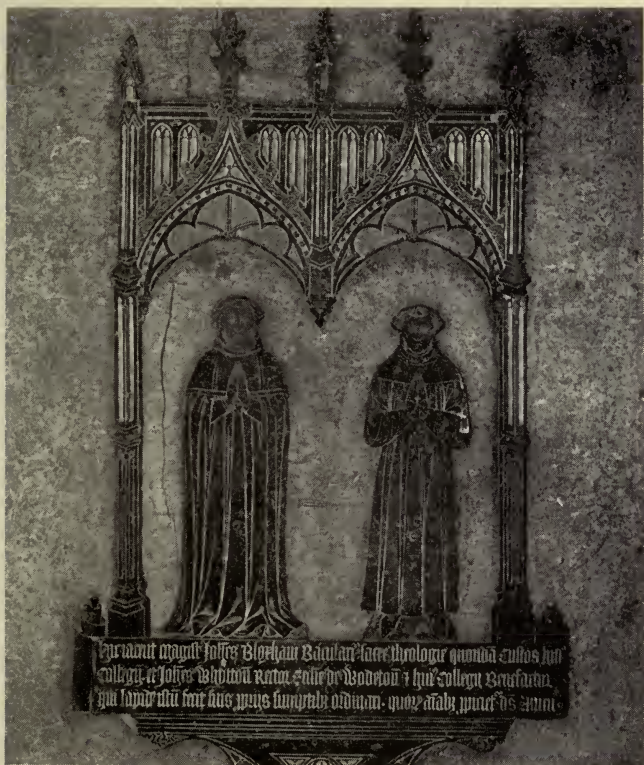 Hic iacent magist Johēs Bloxham Bacularī sacre theologie quondā Custos huiꝰ
Collegii et Johēs Whytton Rector Ecclie de Wodeton & huiꝰ Collegii Benefactor
qui lapidē istū fieri suis ordinavit quoꝝ aīabꝫ ꝓpiciet̄ dš Amen